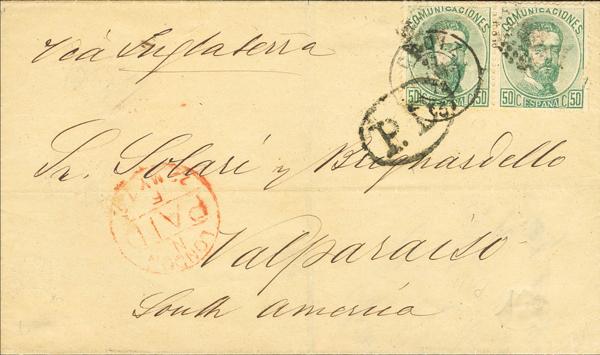 Via Inglaterra
COMUNICACIONES
50 C. ESPAÑA C. 50
COMUNICACIONES
50 C. ESPAÑA C. 50
P. D.
Sr. Solari y Brignardello
LONDON
PAID
MY
Valparaiso
South America